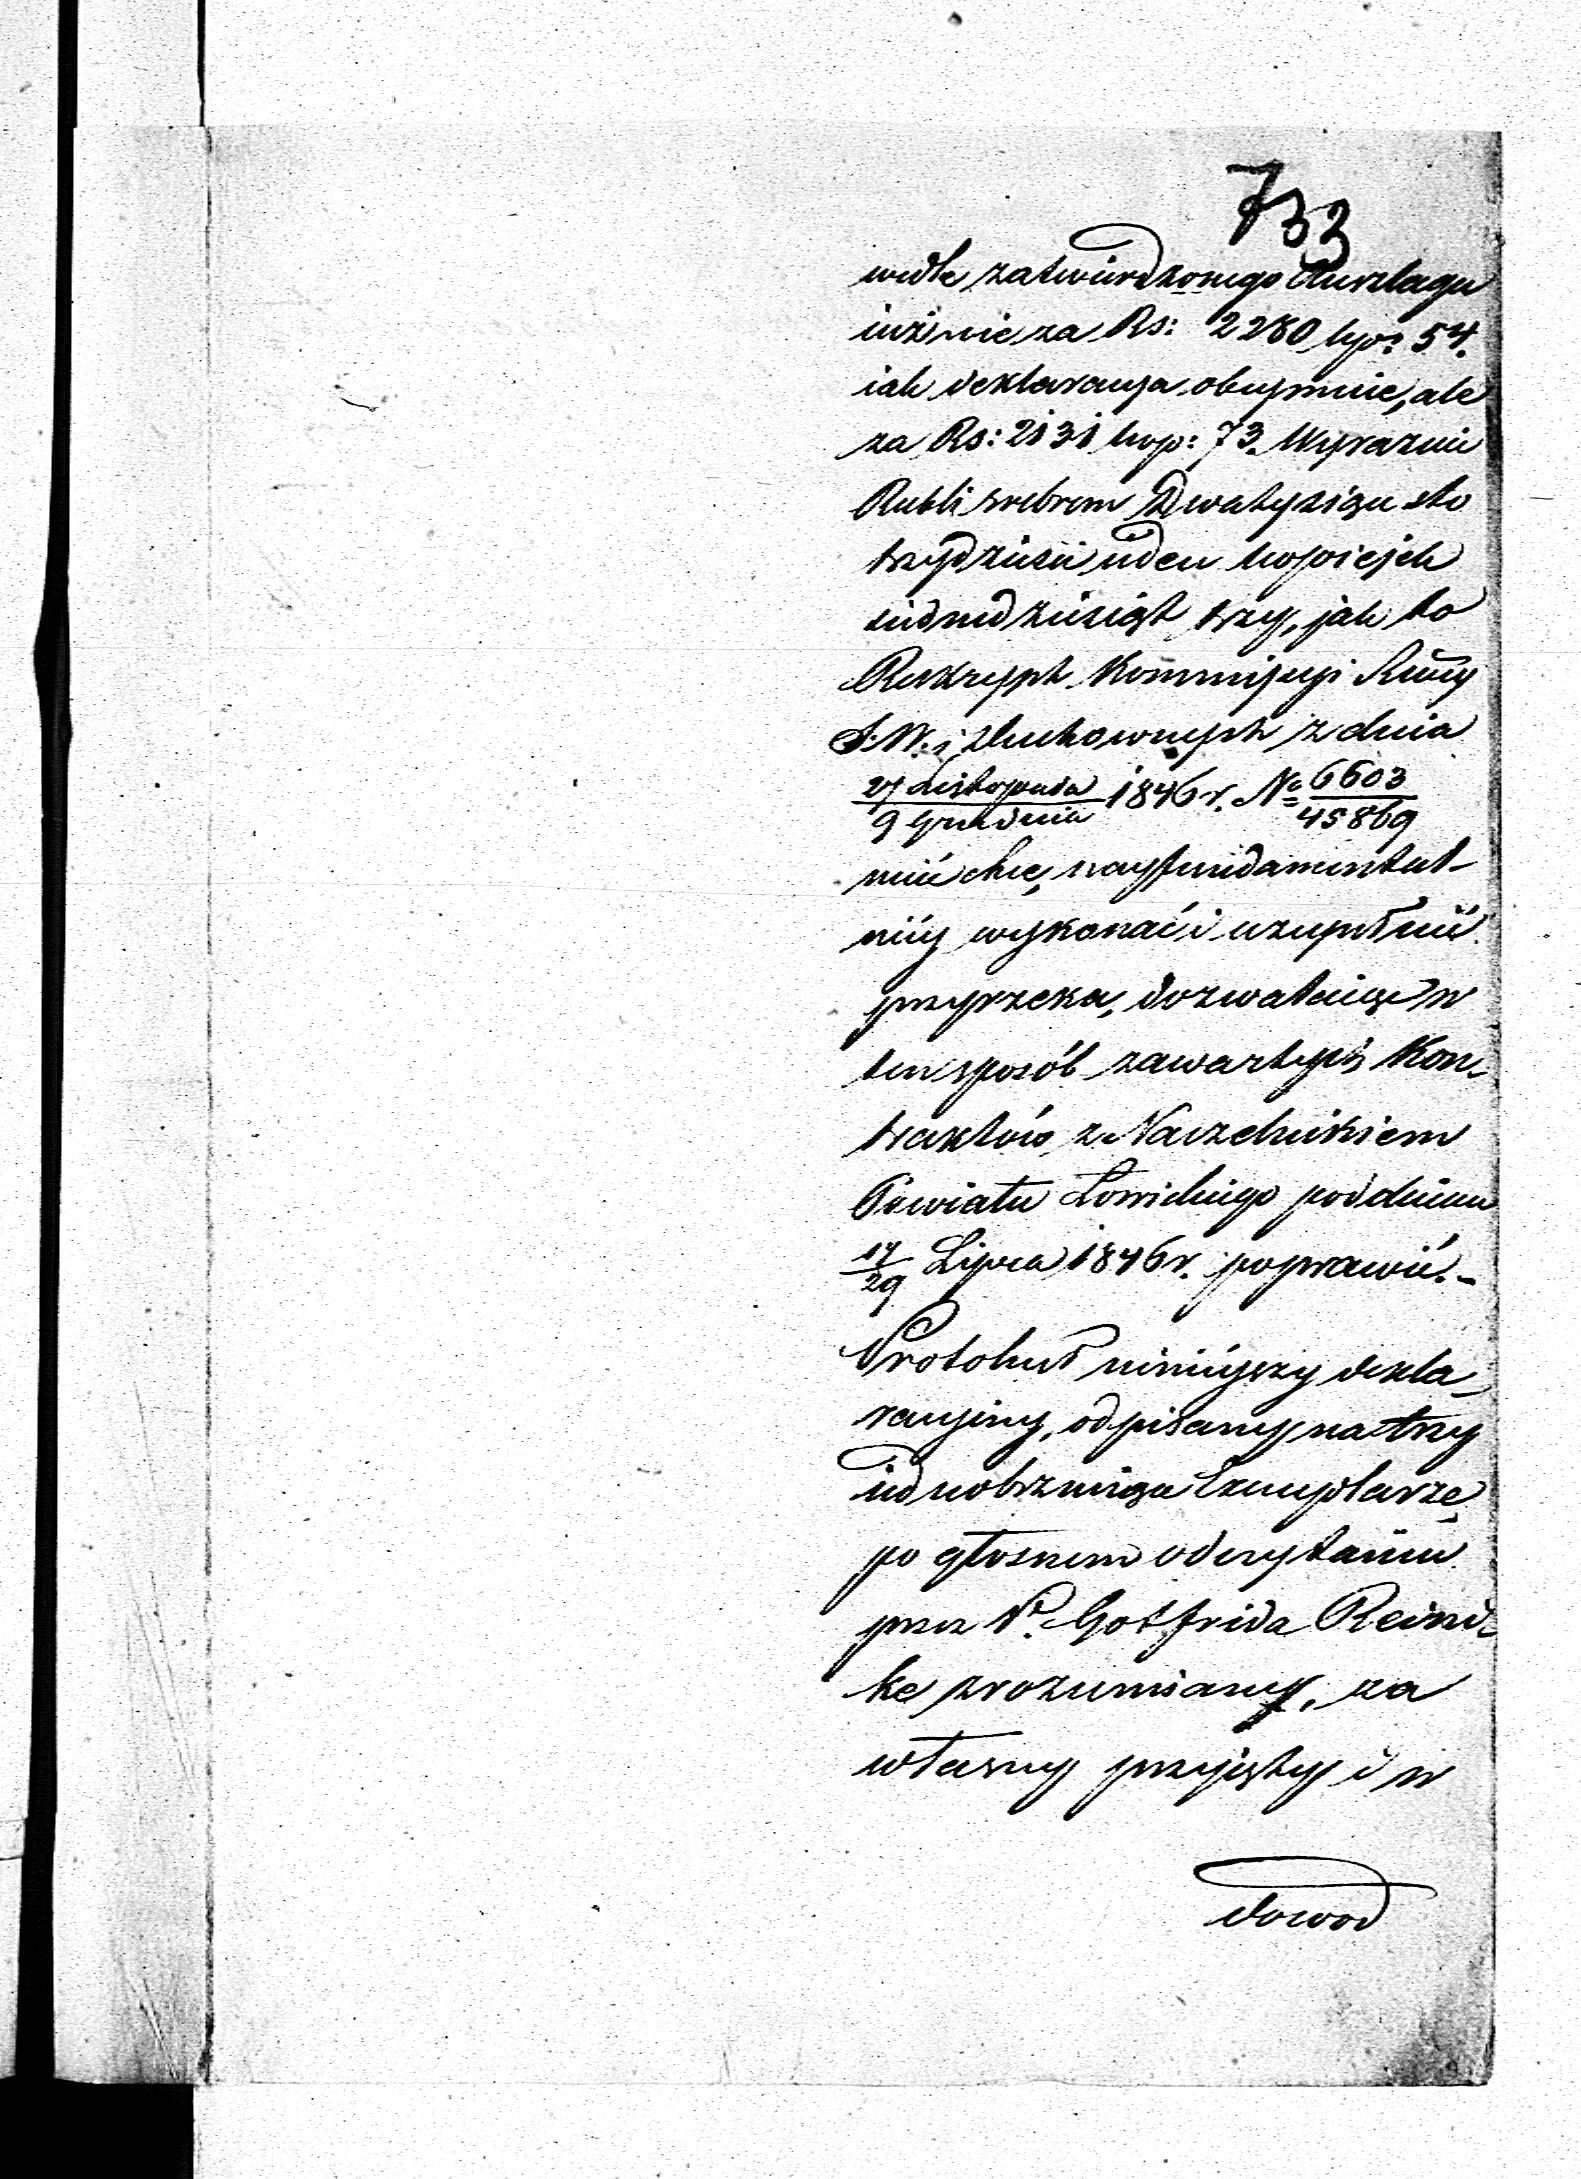 733
wedle zatwierdzonego Anszlagu
iuż nie za Rs: 2280 kop: 54.
iak deklaracya obeymuie, ale
za Rs: 2131 kop: 73. Wyraznie
Rubli srebrem Dwa tysiące sto
trzydzieści ieden kopiejek
siedmdziesiąt trzy, jak to
Reskrypt Kommissyi Rządy
S. W. i Duchownych z dnia
27 Listopada / 9 Grudnia 1846 r. № 6603 / 45869
mieć chce, nayfundamental-
niey wykonać i uzupełnić
przyrzeka, dozwalaiąc w
ten sposób zawartych Kon-
traktów z Naczelnikiem
Powiatu Łowickiego pod dniem
17/29 Lipca 1846 r. poprawić.-
Protokuł ninieyszy dekla-
racyiny, odpisany na trzy
iednobrzmiące Exemplarze
po głosnem odczytaniu
przez P. Gotfrida Reind-
ke zrozumiany, za
własny przyięty i w
dowod